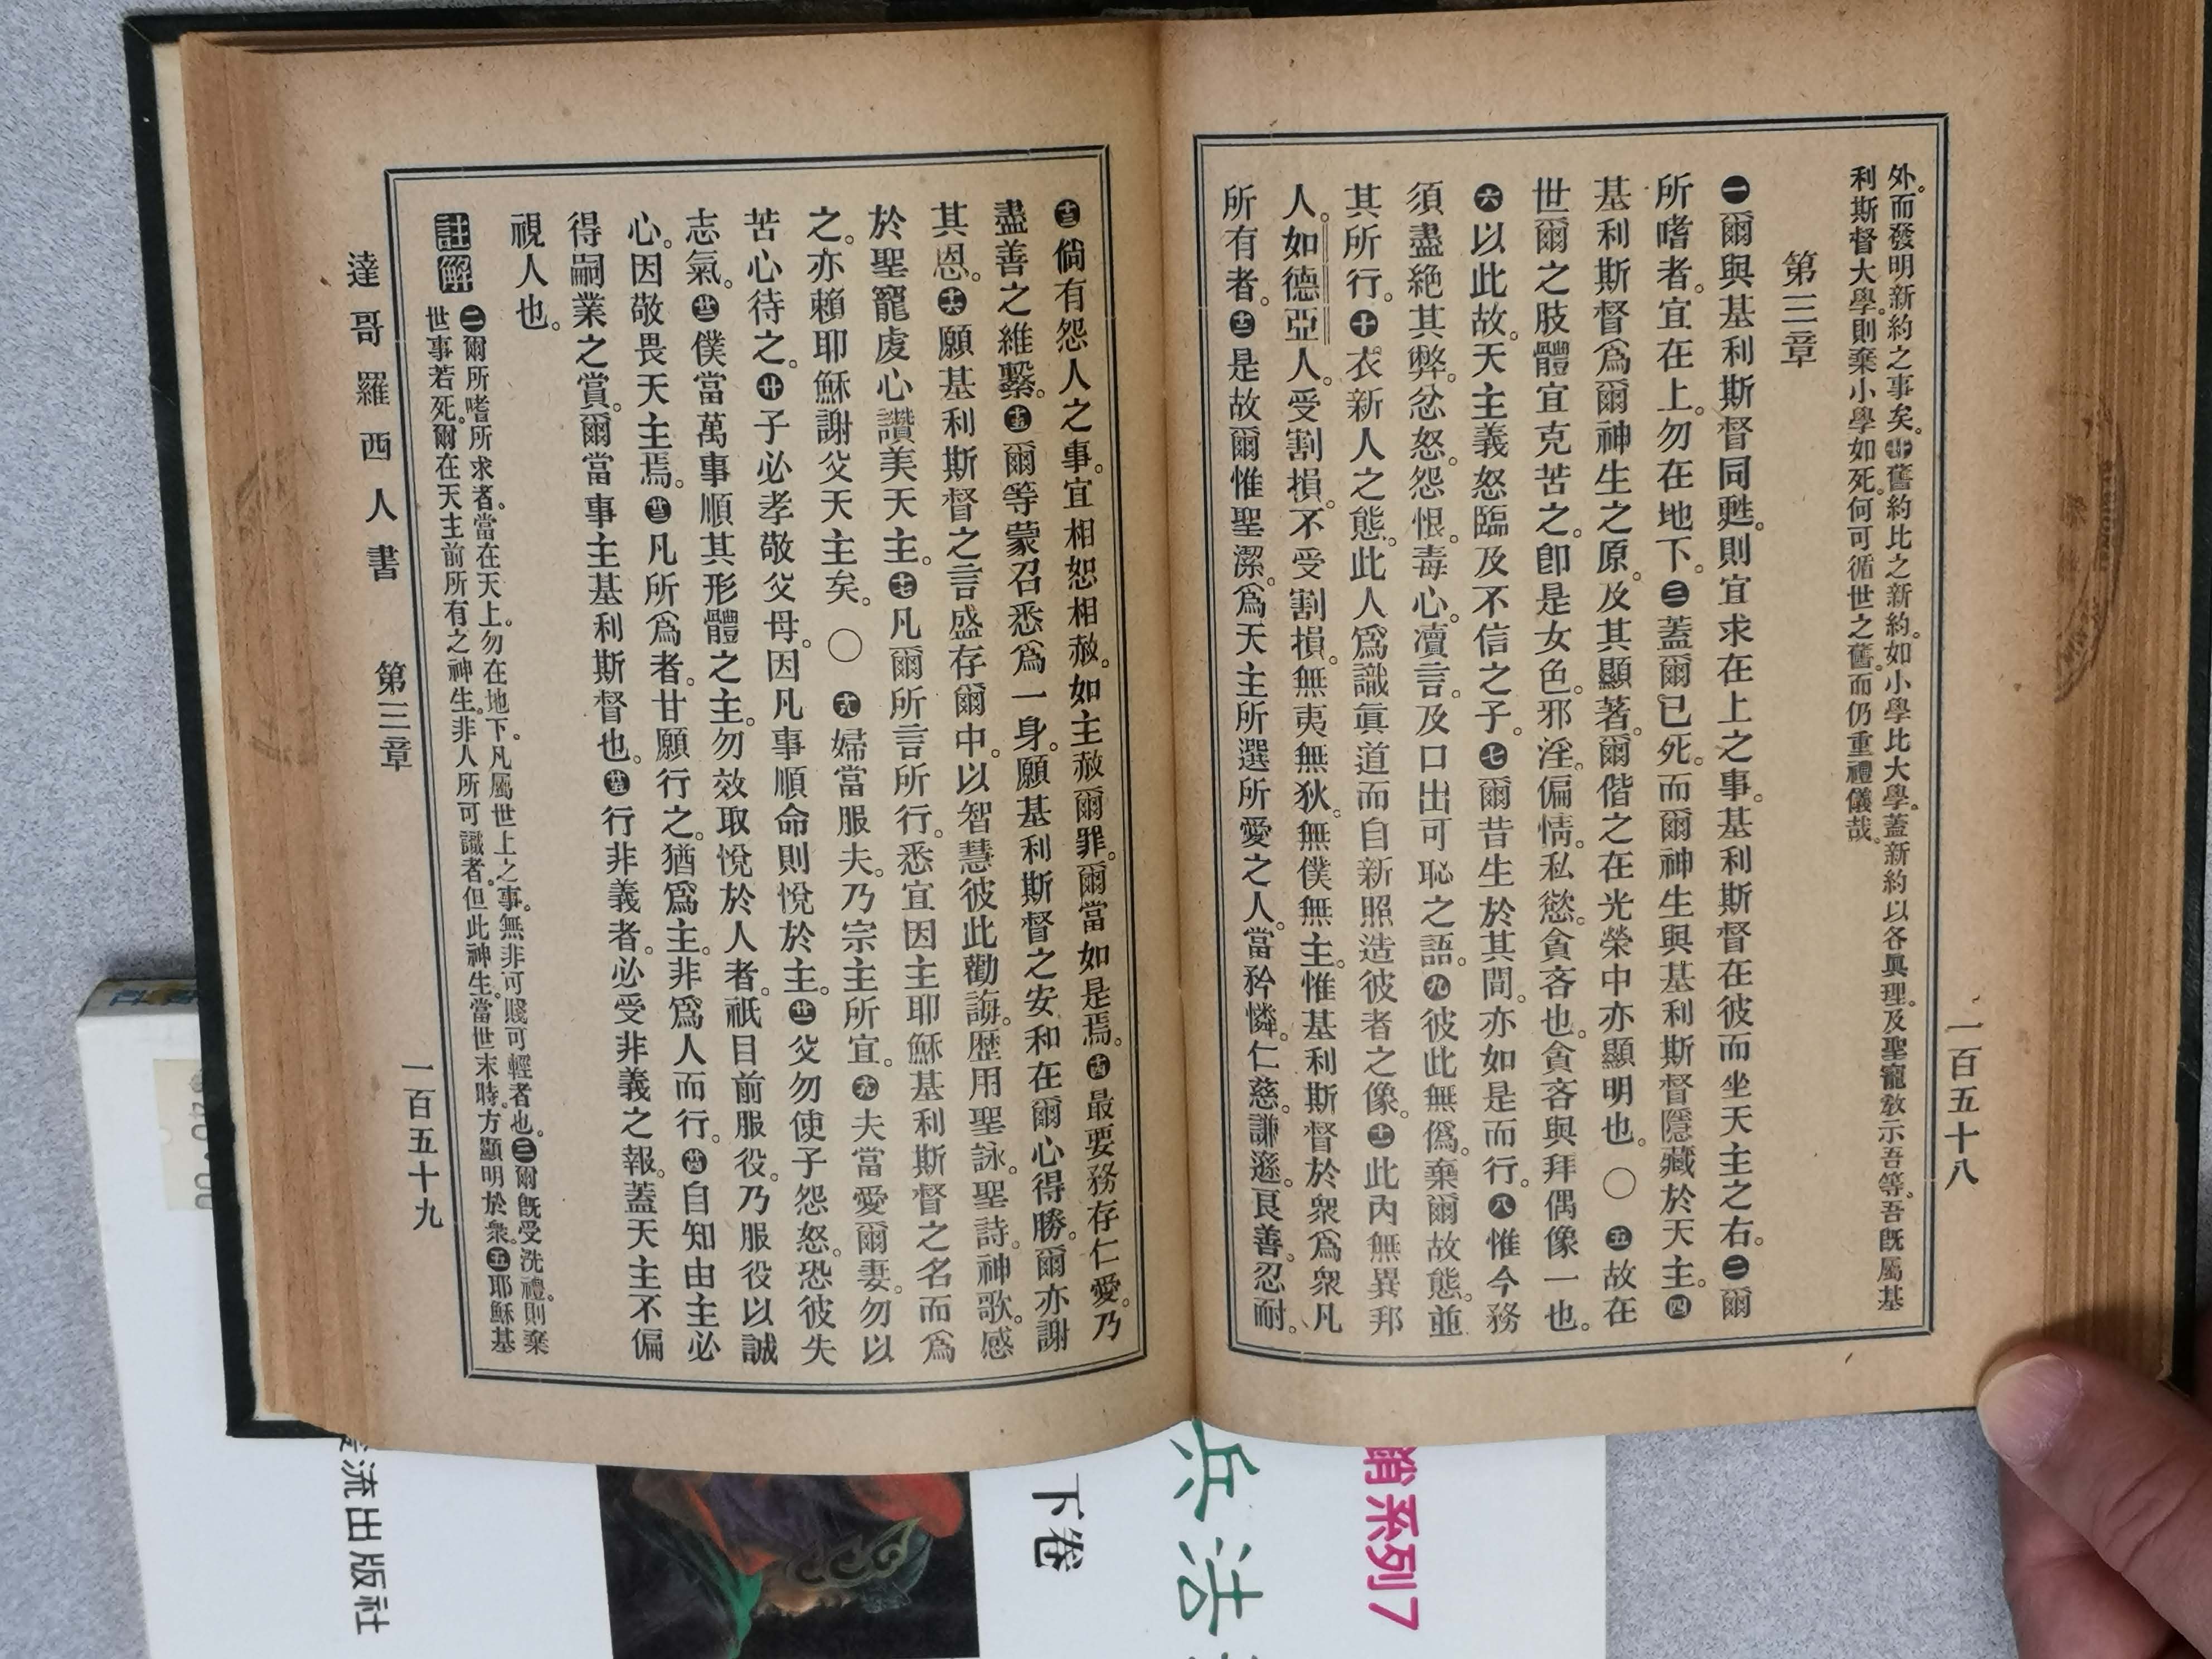 一百五十八
外。而發明新約之事矣。廿舊約比之新約。如小學比大學。蓋新約以各眞理。及聖寵敎示吾等。吾旣屬基
利斯督大學。則棄小學如死。何可循世之舊。而仍重禮儀哉。
第三章
一爾與基利斯督同甦。則宜求在上之事。基利斯督在彼而坐天主之右。二爾
所嗜者。宜在上。勿在地下。三蓋爾已死。而爾神生與基利斯督隱藏於天主。四
基利斯督爲爾神生之原。及其顯著。爾偕之在光榮中亦顯明也。〇五故在
世爾之肢體宜克苦之。卽是女色。邪淫。偏情。私慾。貪吝也。貪吝與拜偶像一也。
六以此故。天主義怒臨及不信之子。七爾昔生於其間。亦如是而行。八惟今務
須盡絕其弊。忿怒。怨恨。毒心。凟言。及口出可恥之語。九彼此無僞。棄爾故態。並
其所行。十衣新人之態。此人爲識眞道而自新照造彼者之像。十一此內無異邦
人。如德亞人。受割損。不受割損。無夷無狄。無僕無主。惟基利斯督於衆爲衆凡
所有者。十二是故爾惟聖潔。爲天主所選所愛之人。當矜憐。仁慈。謙遜。良善。忍耐。
十三倘有怨人之事。宜相恕相赦。如主赦爾罪。爾當如是焉。十四最要務存仁愛。乃
盡善之維繫。十五爾等蒙召悉爲一身。願基利斯督之安和在爾心得勝。爾亦謝
其恩。十六願基利斯督之言盛存爾中。以智慧彼此勸誨。歷用聖詠。聖詩。神歌。感
於聖寵虔心讚美天主。十七凡爾所言所行。悉宜因主耶穌基利斯督之名而爲
之。亦賴耶穌謝父天主矣。〇十八婦當服夫。乃宗主所宜。十九夫當愛爾妻。勿以
苦心待之。廿子必孝敬父母。因凡事順命則悅於主。廿一父勿使子怨怒。恐彼失
志氣。廿二僕當萬事順其形體之主。勿效取悅於人者。祇目前服役。乃服役以誠
心。因敬畏天主焉。廿三凡所爲者。甘願行之。猶爲主。非爲人而行。廿四自知由主必
得嗣業之賞。爾當事主基利斯督也。廿五行非義者。必受非義之報。蓋天主不偏
視人也。
註解 二爾所嗜所求者。當在天上。勿在地下。凡屬世上之事。無非可賤可輕者也。三爾旣受洗禮。則棄
世事若死。爾在天主前所有之神生。非人所可識者。但此神生。當世末時。方顯明於衆。五耶穌基
達哥羅西人書 第三章 一百五十九
流出版社
下卷
兵法
系列7